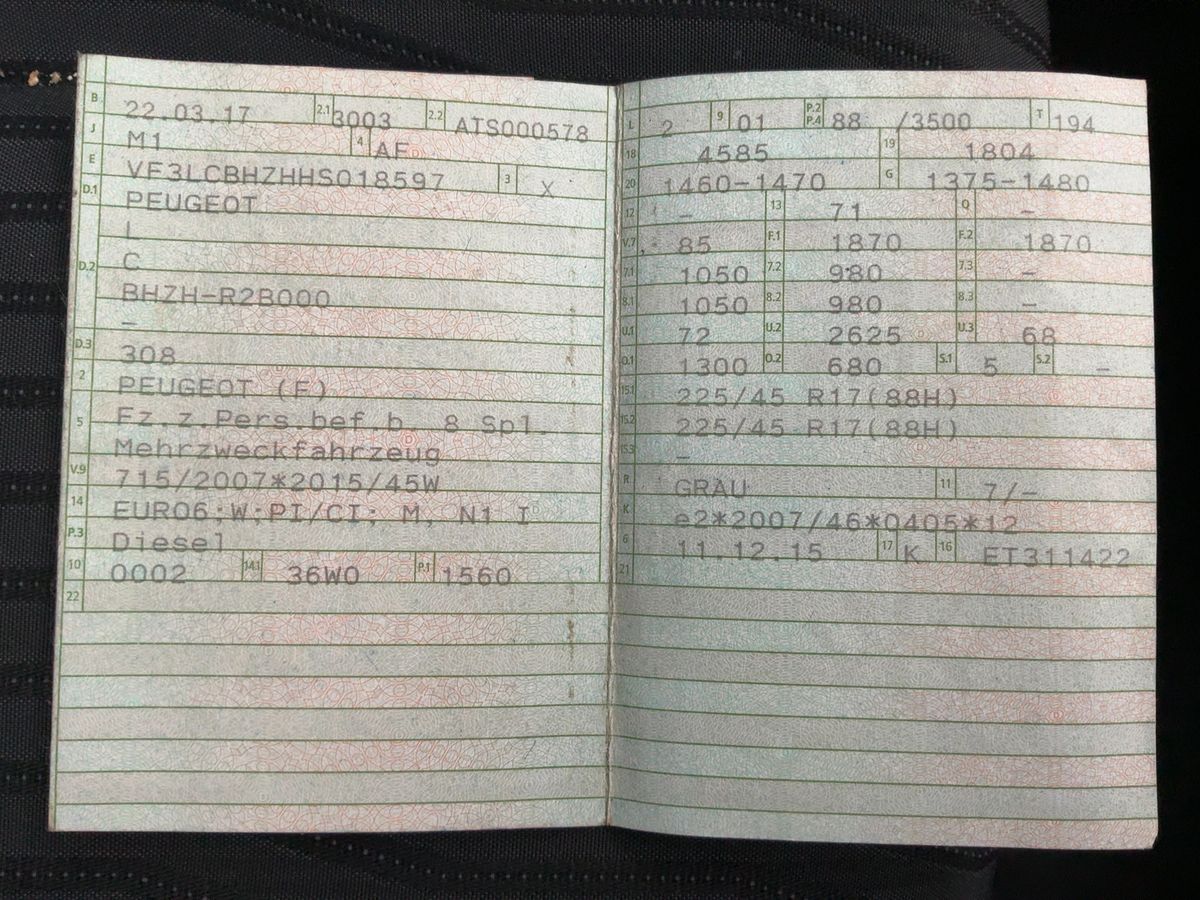 B 22.03.17 2.1 3003 2.2 ATS000578
J M1 4 AF
E VF3LCBHZHHS018597 3 X
D.1 PEUGEOT
L
D.2 C
BHZH-R2B000
–
D.3 308
2 PEUGEOT (F)
5 Fz.z.Pers.bef.b. 8 Spl.
Mehrzweckfahrzeug
V.9 715/2007*2015/45W
14 EURO6;W;PI/CI; M, N1 I
P.3 Diesel
10 0002 14.1 36W0 P.1 1560
22
L 2 9 01 P.2 P.4 88 /3500 T 194
18 4585 19 1804
20 1460-1470 G 1375-1480
12 – 13 71 Q –
V.7 85 F.1 1870 F.2 1870
7.1 1050 7.2 980 7.3 –
8.1 1050 8.2 980 8.3 –
U.1 72 U.2 2625 U.3 68
O.1 1300 O.2 680 S.1 5 S.2 –
15.1 225/45 R17(88H)
15.2 225/45 R17(88H)
15.3 –
R GRAU 11 7/–
K e2*2007/46*0405*12
6 11.12.15 17 K 16 ET311422
21